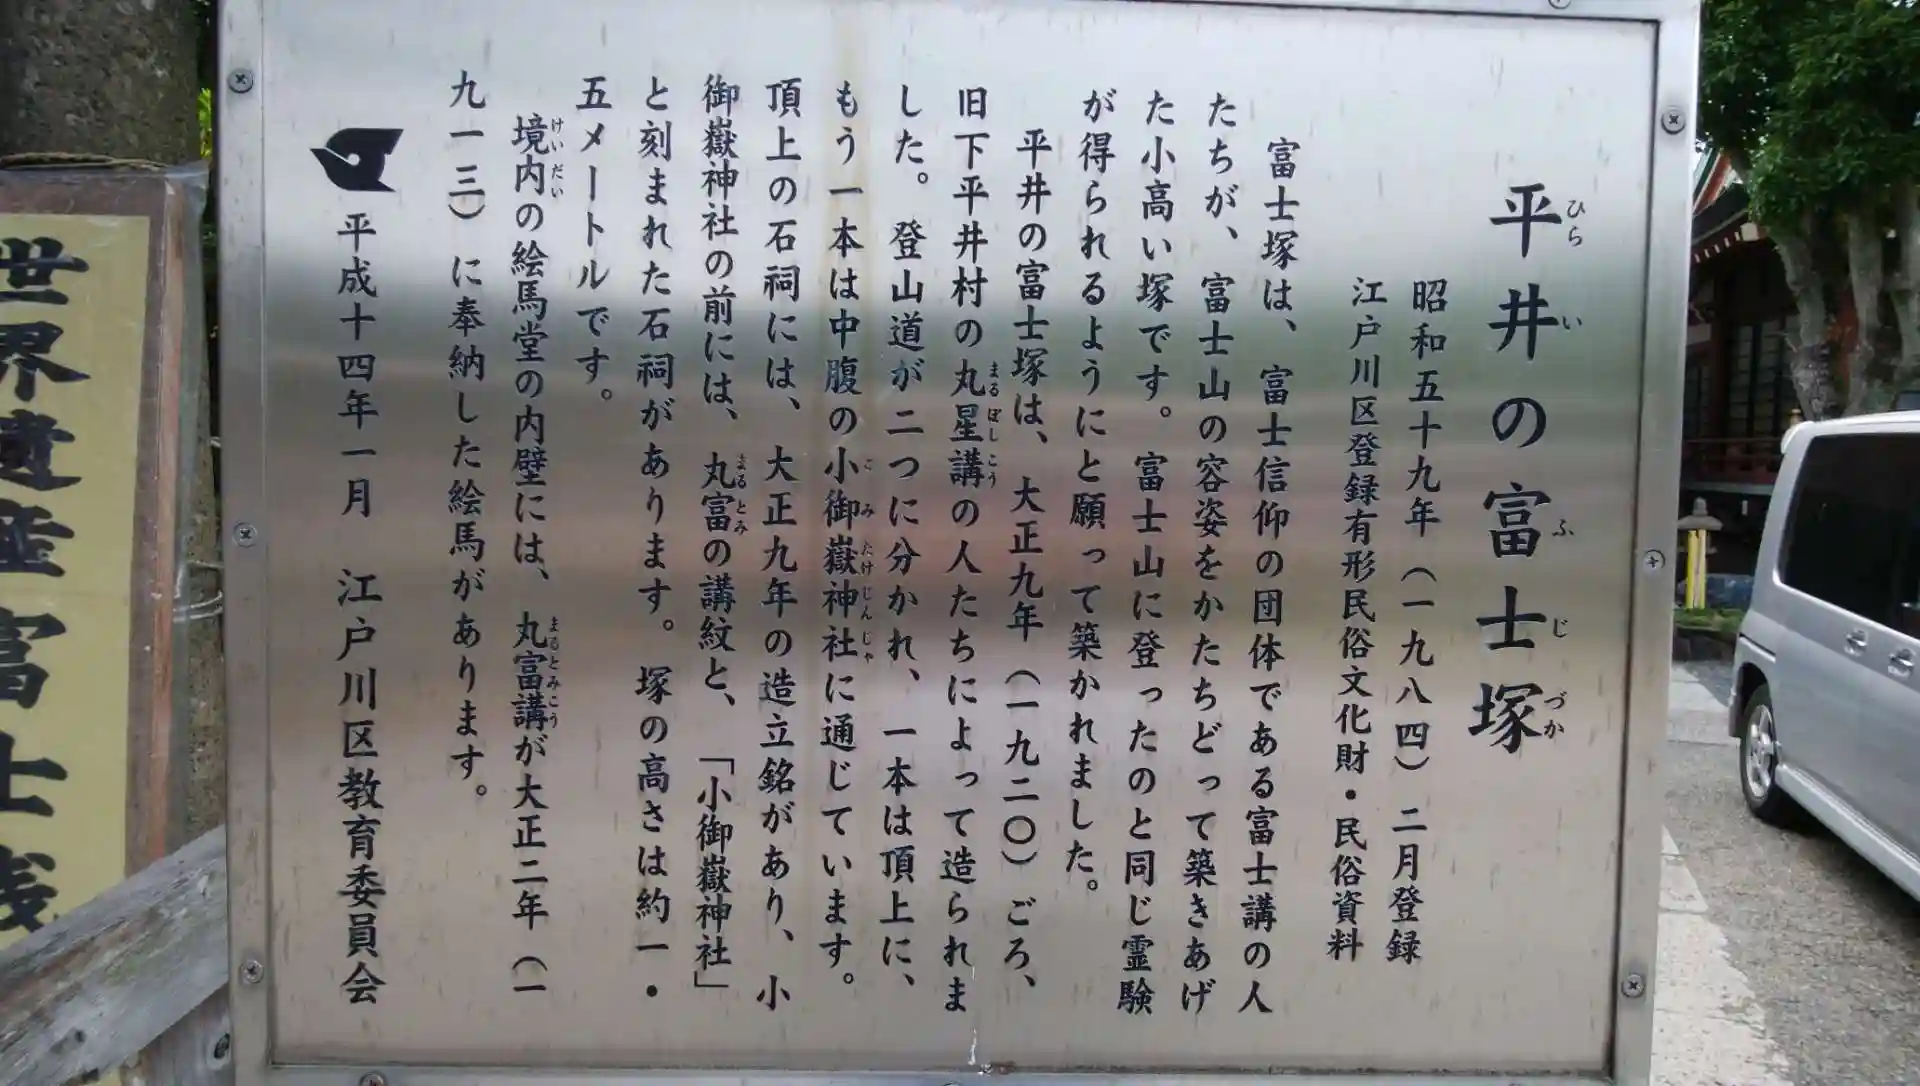 平井の富士塚
ひらいふじづか
昭和五十九年(一九八四)二月登録
江戸川区登録有形民俗文化財・民俗資料
富士塚は、富士信仰の団体である富士講の人
たちが、富士山の容姿をかたちどって築きあげ
た小高い塚です。富士山に登ったのと同じ霊験
が得られるようにと願って築かれました。
平井の富士塚は、大正九年(一九二〇)ごろ、
旧下平井村の丸星講の人たちによって造られま
まるぼしこう
した。登山道が二つに分かれ、一本は頂上に、
もう一本は中腹の小御嶽神社に通じています。
こみたけじんじゃ
頂上の石祠には、大正九年の造立銘があり、小
御嶽神社の前には、丸富の講紋と、「小御嶽神社」
まるとみ
と刻まれた石祠があります。塚の高さは約一・
五メートルです。
境内の絵馬堂の内壁には、丸富講が大正二年(一
けいだい まるとみこう
九一三)に奉納した絵馬があります。
平成十四年一月 江戸川区教育委員会
世界遺産富士浅